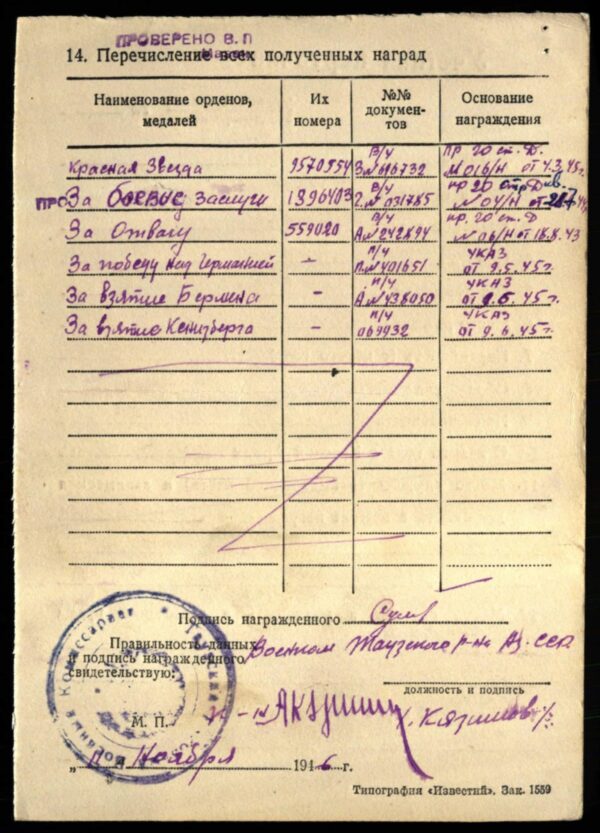 ПРОВЕРЕНО В. П
14. Перечисление всех полученных наград
Наименование орденов, медалей
Их номера
№№ документов
Основание награждения
Красная Звезда 1570554 В/ч З № 616732 пр 20 ст. Д. № 016/Н от 4.3.45г.
За боевые заслуги 1396403 В/ч 2. № 031785 пр 20 № 04/Н
За Отвагу 559020 В/ч А № 242894 пр. 20 ст. Д № 06/Н от 18.8.43
За победу над Германией – п/ч П. № 401651 УКАЗ от 9.5.45г.
За взятие Берлина – п/ч А № 438050 УКАЗ от 9.6.45г.
За взятие Кенигзберга – п/ч 069932 УКАЗ от 9.6.45г.
Подпись награжденного
Правильность данных
и подпись награжденного
свидетельствую:
Военком Таузского р-на Аз. ССР
должность и подпись
М. П.
Кязимов
„ 11 “ Ноября 1946 г.
Типография «Известий». Зак. 1559